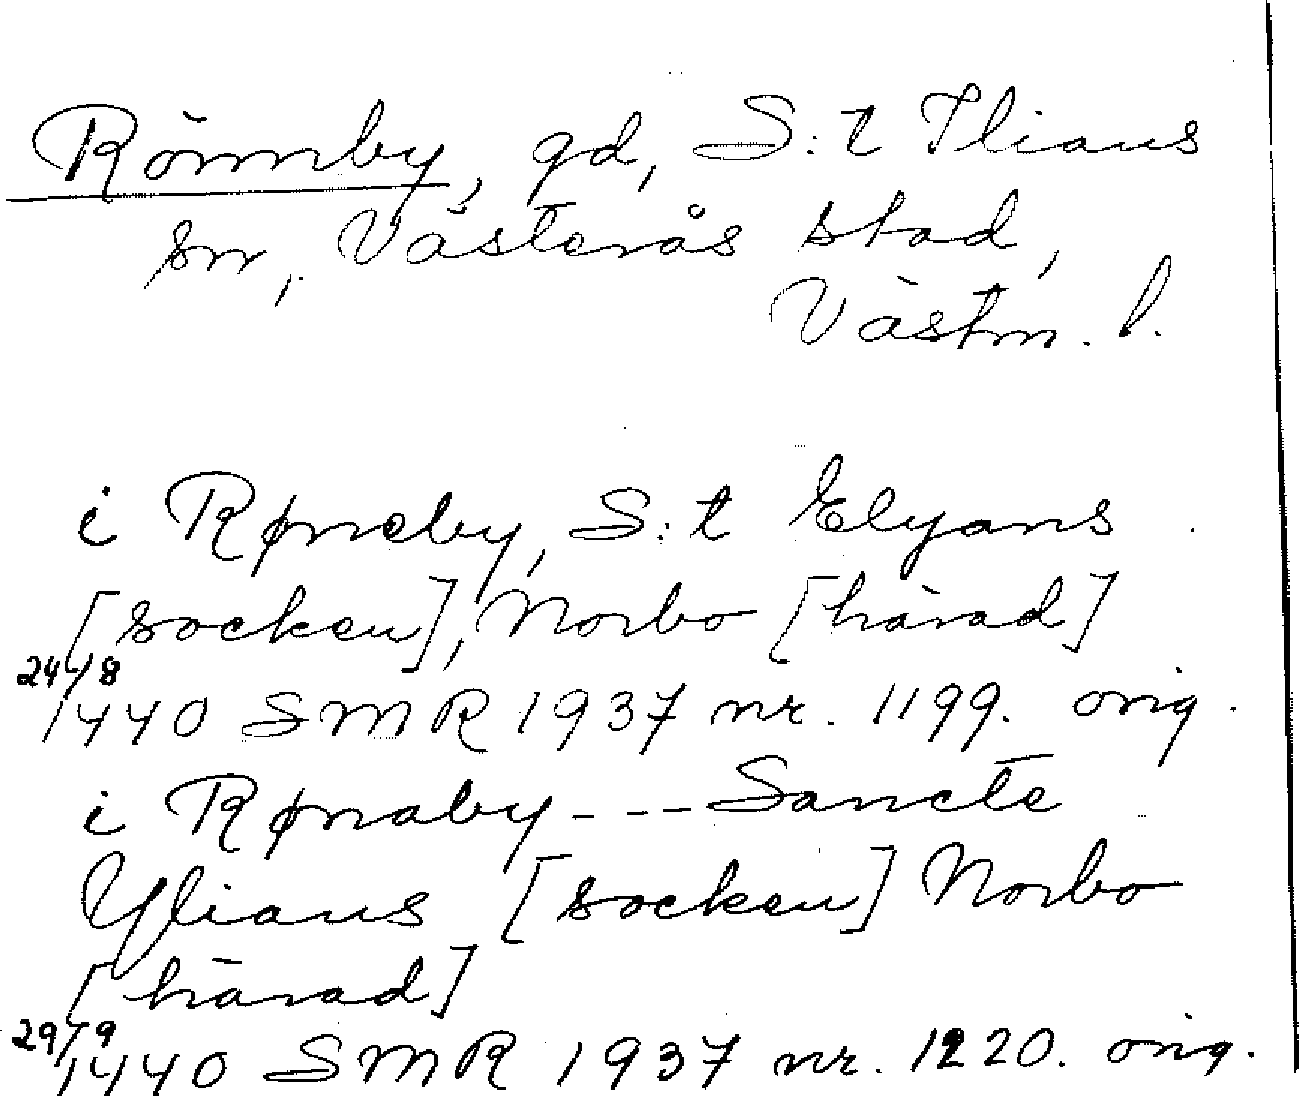 Rönnby, gd, S:t Ilians
sn, Västerås stad,
Västm. l.
i Røneby, S:t Elyans
[socken], Norbo [härad]
24/8
1440 SMR 1937 nr. 1199. orig.
i Rønaby --- Sancte
Ylians [socken] Norbo
[härad]
29/9
1440 SMR 1937 nr. 1220. orig.